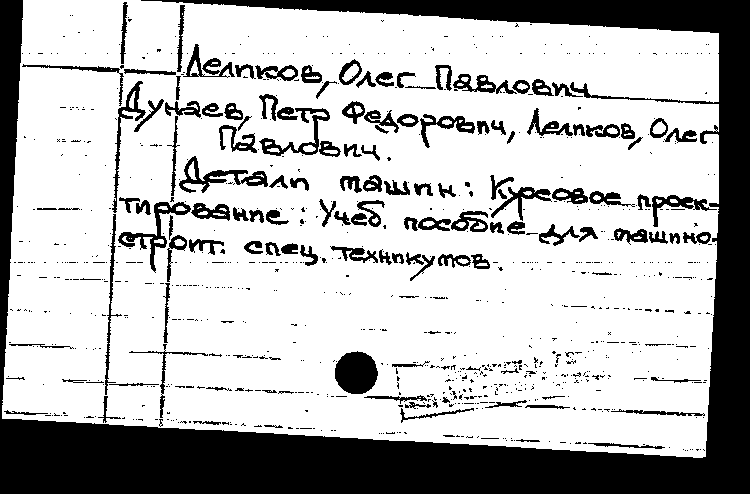 Леликов, Олег Павлович
Дунаев, Петр Федорович, Леликов, Олег
Павлович.
Детали машин: Курсовое проек-
тирование: Учеб. пособие для машино-
строит. спец. техникумов.